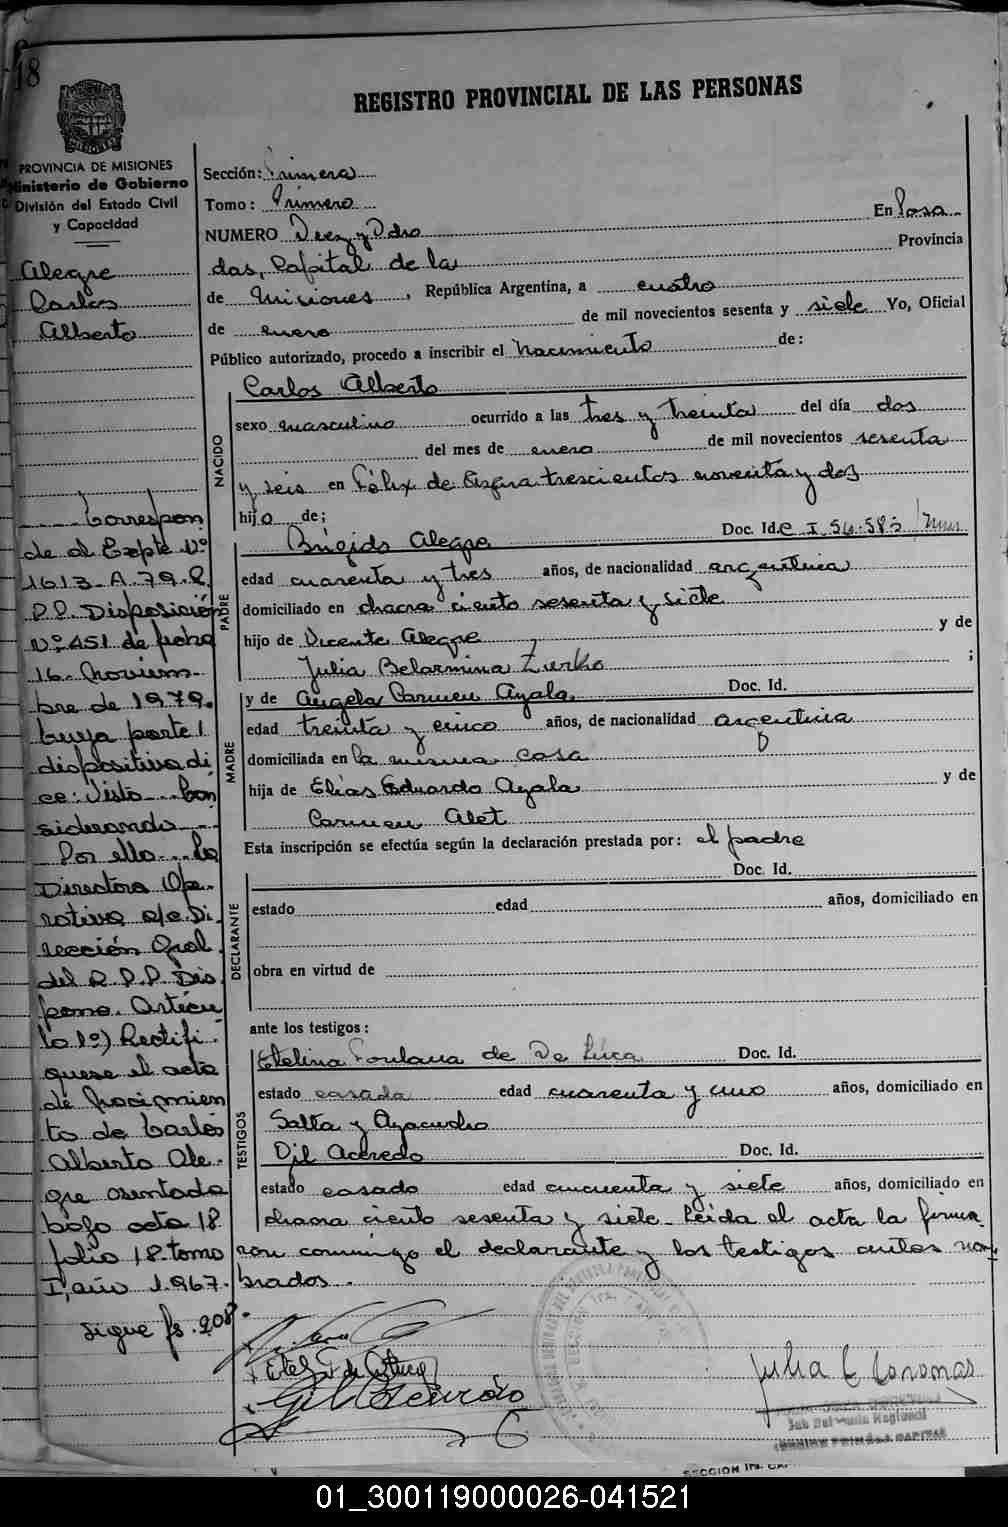 18
REGISTRO PROVINCIAL DE LAS PERSONAS
PROVINCIA DE MISIONES
Ministerio de Gobierno
División del Estado Civil
y Capacidad
Alegre
Carlos
Alberto
Correspon
de al Expte Nº
1613-A-79-R.
P.P. Disposición
Nº 451 de fecha
16- Noviem-
bre de 1979.
cuya parte
dispositiva di
ce: Visto... Con
siderando...
Por ello... la
Directora Ope-
rativa a/c. Di
rección Gral
del R.P.P. Dis
pone. Artícu
lo 1º) Rectifí-
quese el acta
de Nacimien
to de Carlos
Alberto Ale-
gre asentada
bajo acta 18
folio 18. tomo
I, año 1.967.
sigue fs. 208
Sección: Primera
Tomo: Primero
NUMERO Diez y Ocho En Posa
das, Capital de la Provincia
de Misiones, República Argentina, a cuatro
de enero de mil novecientos sesenta y siete Yo, Oficial
Público autorizado, procedo a inscribir el nacimiento de:
NACIDO
Carlos Alberto
sexo masculino ocurrido a las tres y treinta del día dos
del mes de enero de mil novecientos sesenta
y seis en Félix de Azara trescientos noventa y dos
hijo de;
PADRE
Brígido Alegre Doc. Id. C I
edad cuarenta y tres años, de nacionalidad argentina
domiciliado en chacra ciento sesenta y siete
hijo de Vicente Alegre y de
Julia Belarmina ;
MADRE
y de Angela Carmen Ayala Doc. Id.
edad treinta y cinco años, de nacionalidad argentina
domiciliada en la misma casa
hija de Elías Eduardo Ayala y de
Carmen Alet
Esta inscripción se efectúa según la declaración prestada por: el padre
DECLARANTE
Doc. Id.
estado edad años, domiciliado en
obra en virtud de
ante los testigos:
TESTIGOS
Etelina Fontana de De Luca Doc. Id.
estado casada edad cuarenta y uno años, domiciliado en
Salta y Ayacucho
Gil Acevedo Doc. Id.
estado casado edad cincuenta y siete años, domiciliado en
chacra ciento sesenta y siete. Leída el acta la firma-
ron conmigo el declarante y los testigos antes nom-
brados.
Gil Acevedo
Julia C Coronas
01_300119000026-041521